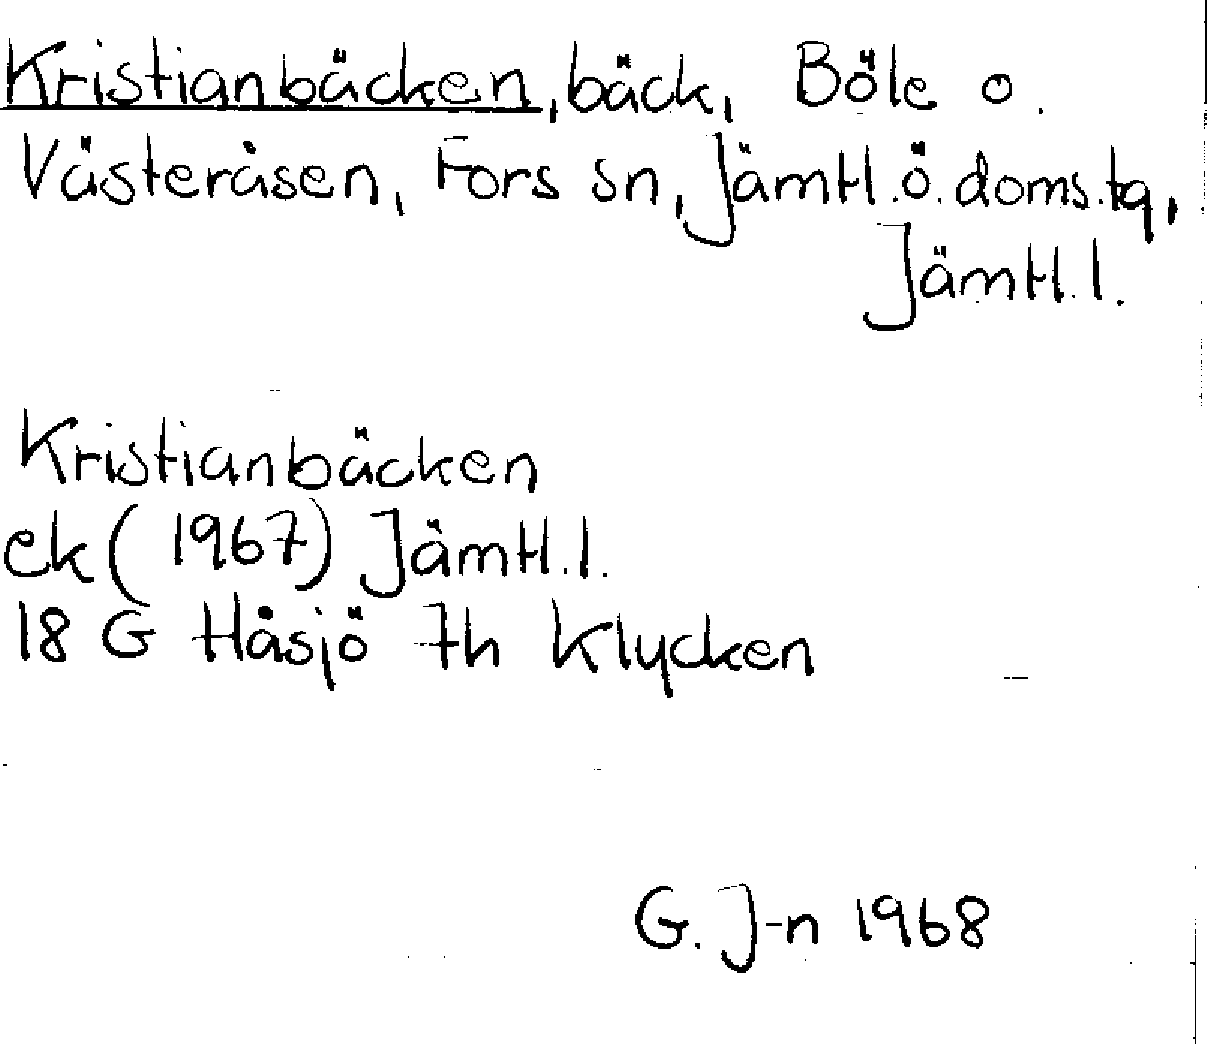 Kristianbäcken, bäck, Böle o.
Västeråsen, Fors sn, Jämtl.ö.doms.tg,
Jämtl.l.
Kristianbäcken
ek (1967) Jämtl.l.
18 G Håsjö 7h Klycken
G. J-n 1968